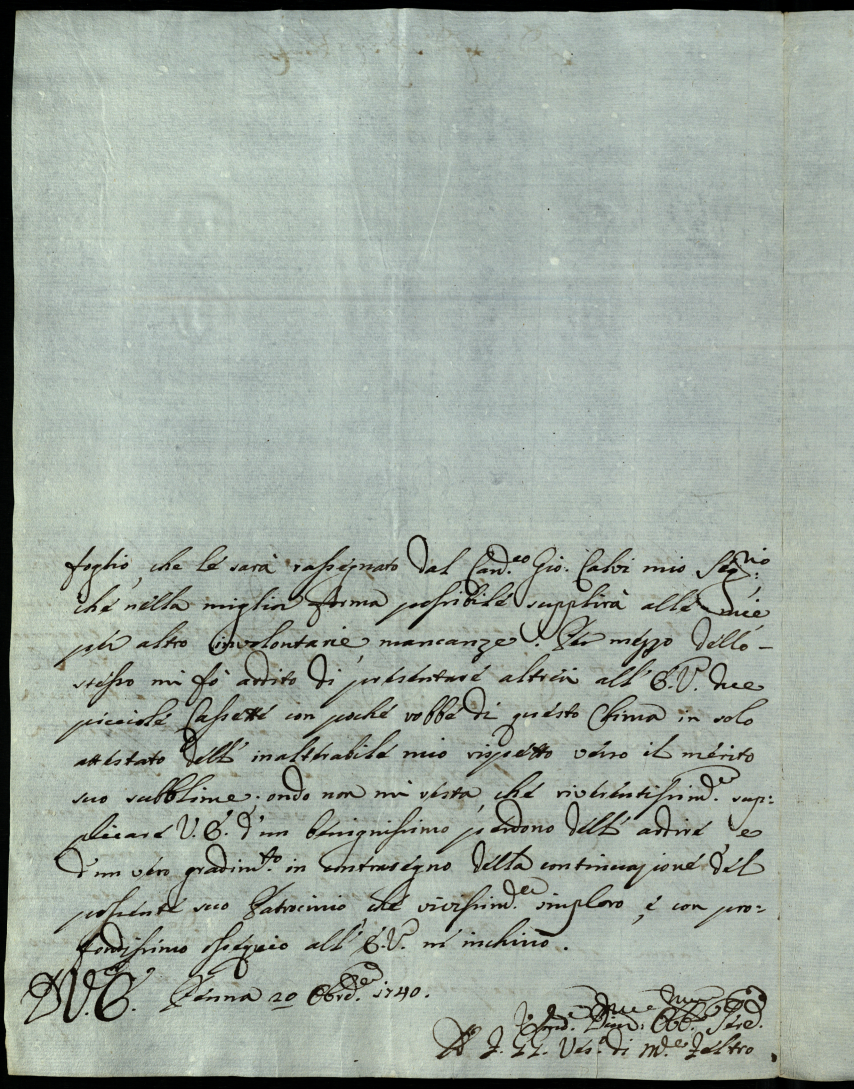 foglio, che le sarà rassegnato dal Can.co Gio. Calvi mio Seg.rio
che nella miglior forma possibile supplirà alle mie
per altro involontarie mancanze. Per mezzo dello
stesso mi fò ardito di presentare altresi all' E.V. due
picciole Cassette con poche robbe di questo Clima in solo
attestato dell' inalterabile mio rispetto verso il merito
suo subblime; ondo non mi resta che riverentissim.e sup:
plicare V.E. d'un benignissimo perdono dell' ardire e
d'un vero gradim.to in contrasegno della continuazione del
possente suo Patrocinio che vivissim.e imploro, e con pro:
fondissimo ossequio all' E.V. m' inchino.
D V.E. Penna 20 Xbre 1740.
Vés.o di M.e Feltro